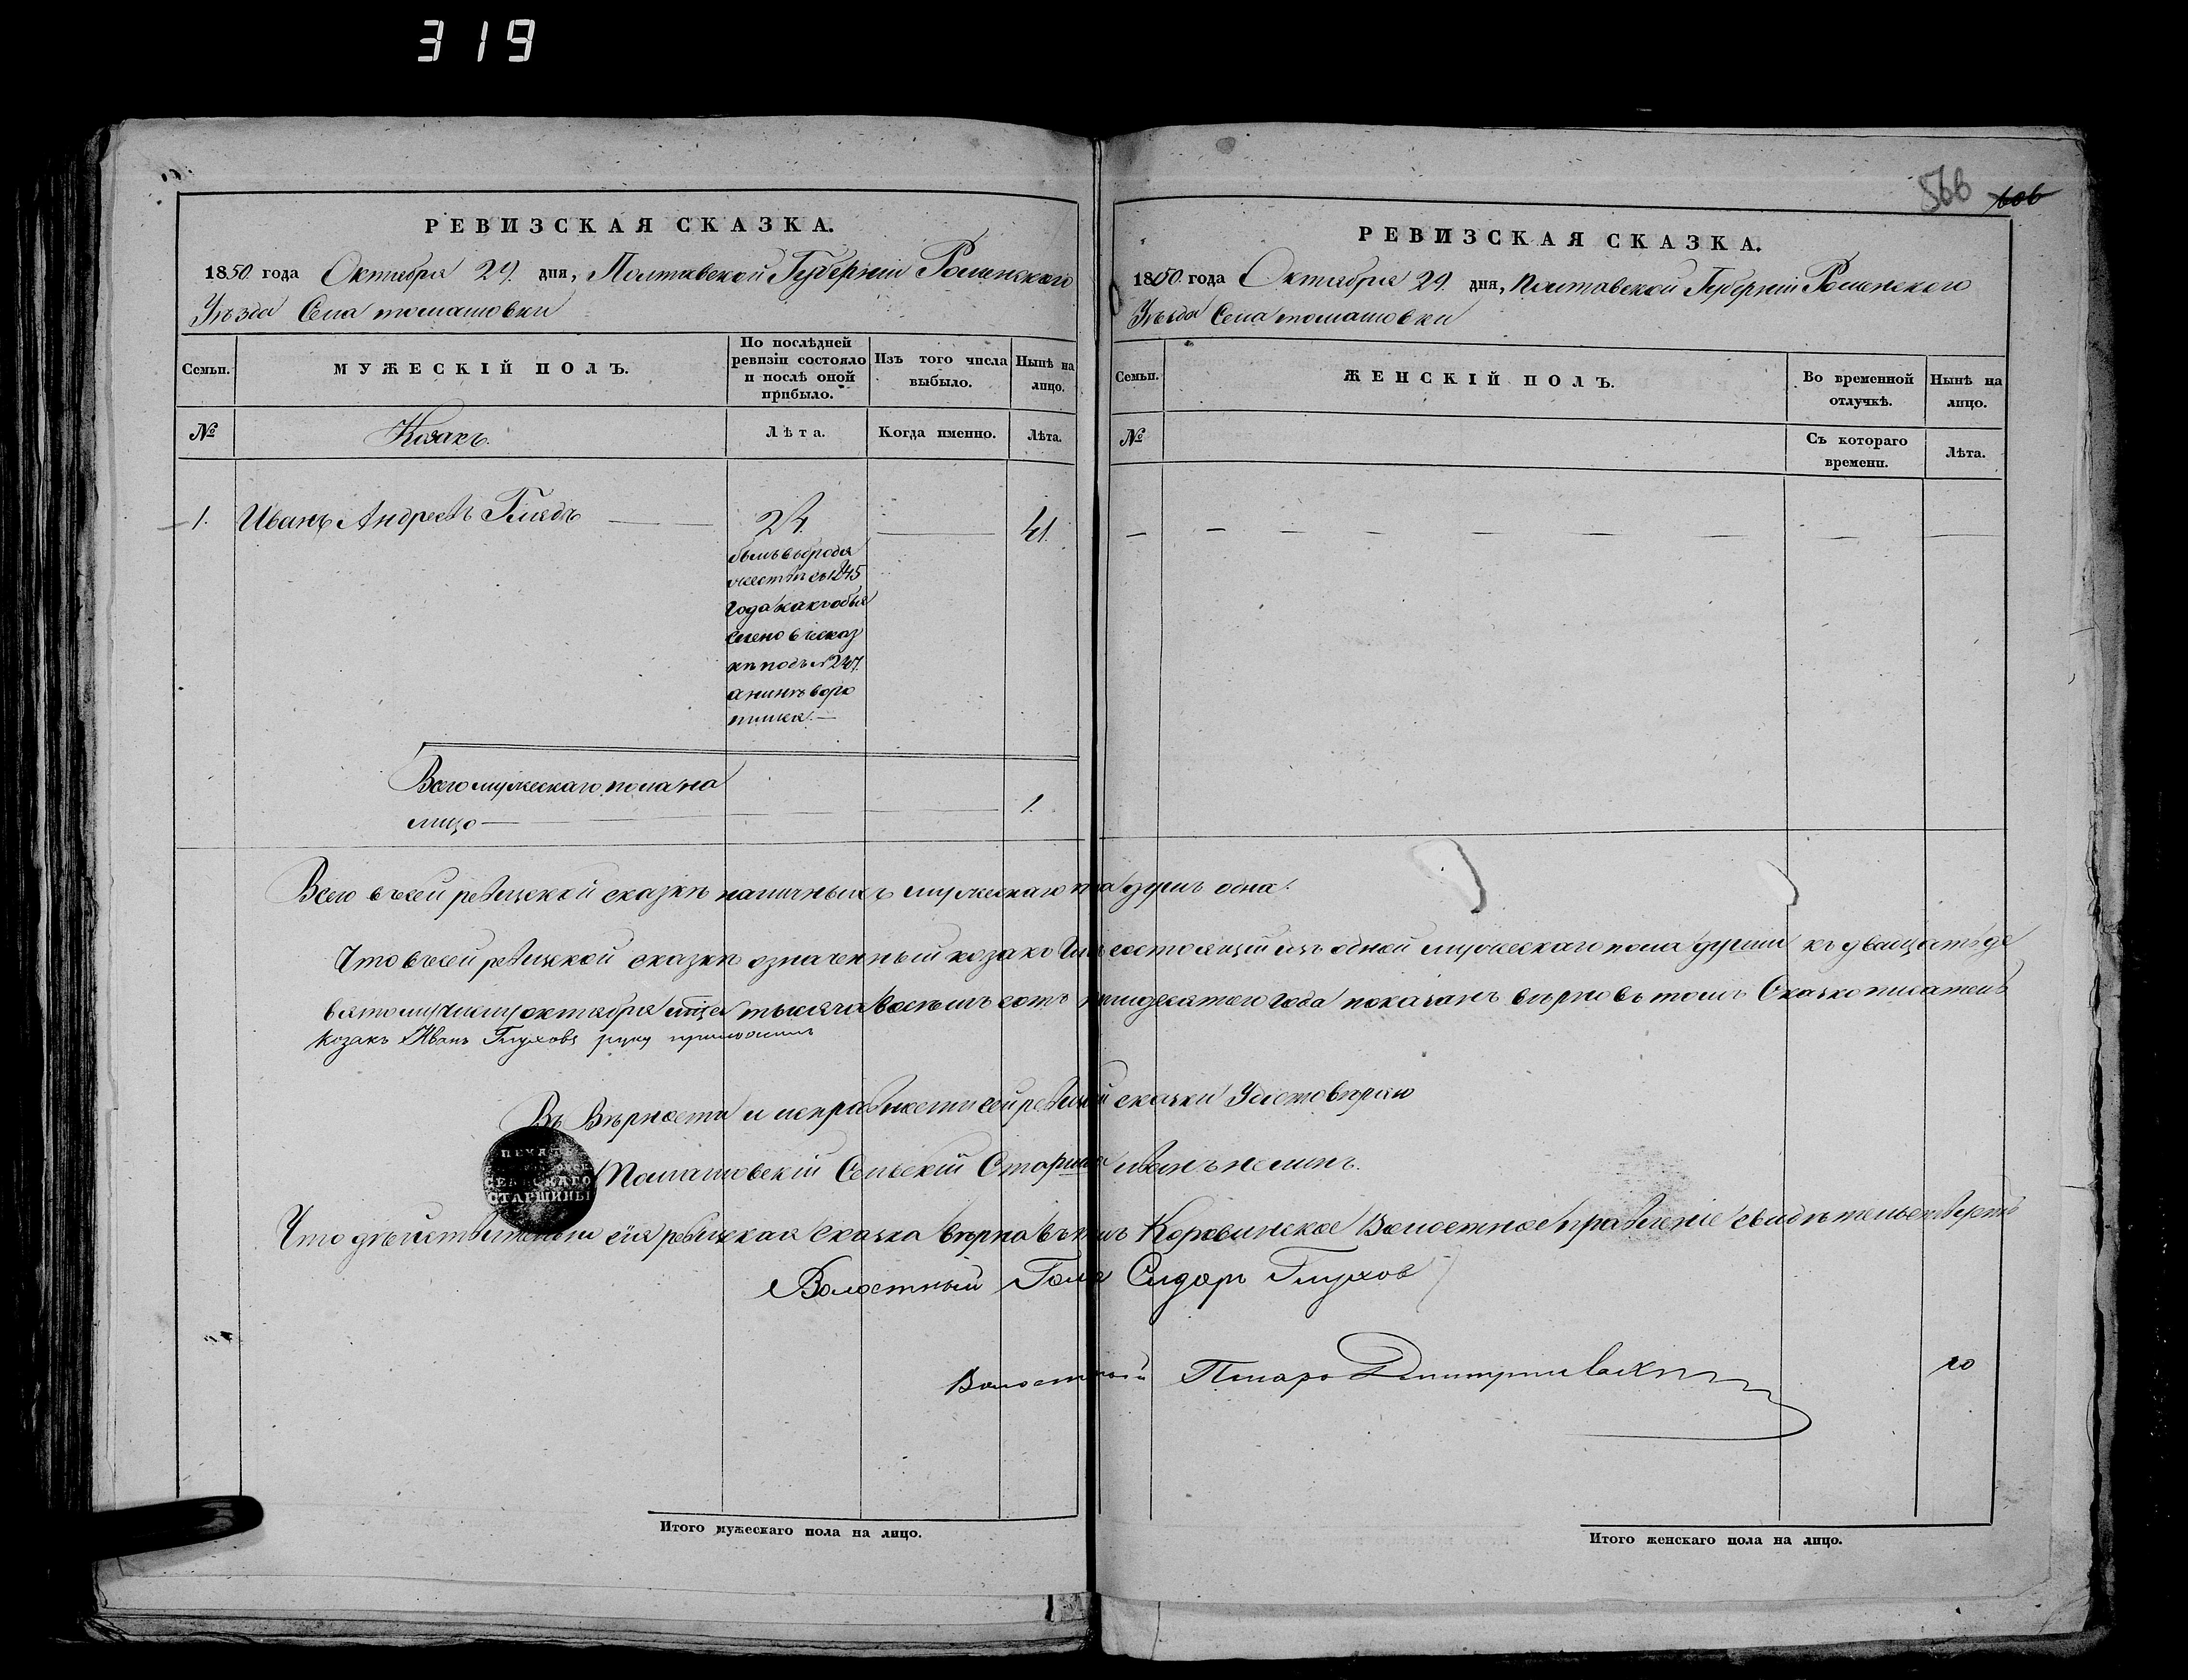 319
566 606
РЕВИЗСКАЯ СКАЗКА.
1850 года Октября 29. дня, Полтавской Губерніи Роменскаго
Уѣзда Села томашовки
Семьи. МУЖЕСКІЙ ПОЛЪ. По послѣдней ревизіи состояло и послѣ оной прибыло. Изъ того числа выбыло. Нынѣ на лицо.
№ Козакъ. Лѣта. Когда именно. Лѣта.
1. Иванъ Андреевъ Гмидъ 24. 41.
былъ въ бродя
жествѣ съ 1845
года как объя
снено в сказ
кѣ подъ № 247.
а нинѣ воро
тился.
Всего мужескаго пола на
лицо 1.
РЕВИЗСКАЯ СКАЗКА.
1850 года Октября 29. дня, Полтавской Губерніи Роменского
Уѣзда Села томашовки
Семьи. ЖЕНСКІЙ ПОЛЪ. Во временной отлучкѣ. Нынѣ на лицо.
№ Съ котораго времени. Лѣта.
Всего въ сей ревизской сказкѣ наличныхъ мужескаго душъ одна.
Что в сей ревизской сказкѣ означенный козак состоящій изъ одной мужескаго пола души къ двацать де
вятому числу октября тысяча восемъ сотъ пятдесятого года показанъ вѣрно въ томъ Сказкописатель
козакъ Иванъ Глуховъ руку приложилъ
Въ Вѣрности и исправности сей ревизкой сказки Удостовѣряю
ПЕЧА СЕЛЬСКАГО СТАРШИНЫ
Томашовскій Сельскій Старшина Иванъ
Что дѣйствительно сія ревизская сказка вѣрна въ томъ Коровинское Волостное правленіе свидѣтельствуетъ
Волостный Голова Сидоръ Глухов
Волостной Писарь
20
Итого мужескаго пола на лицо.
Итого женскаго пола на лицо.